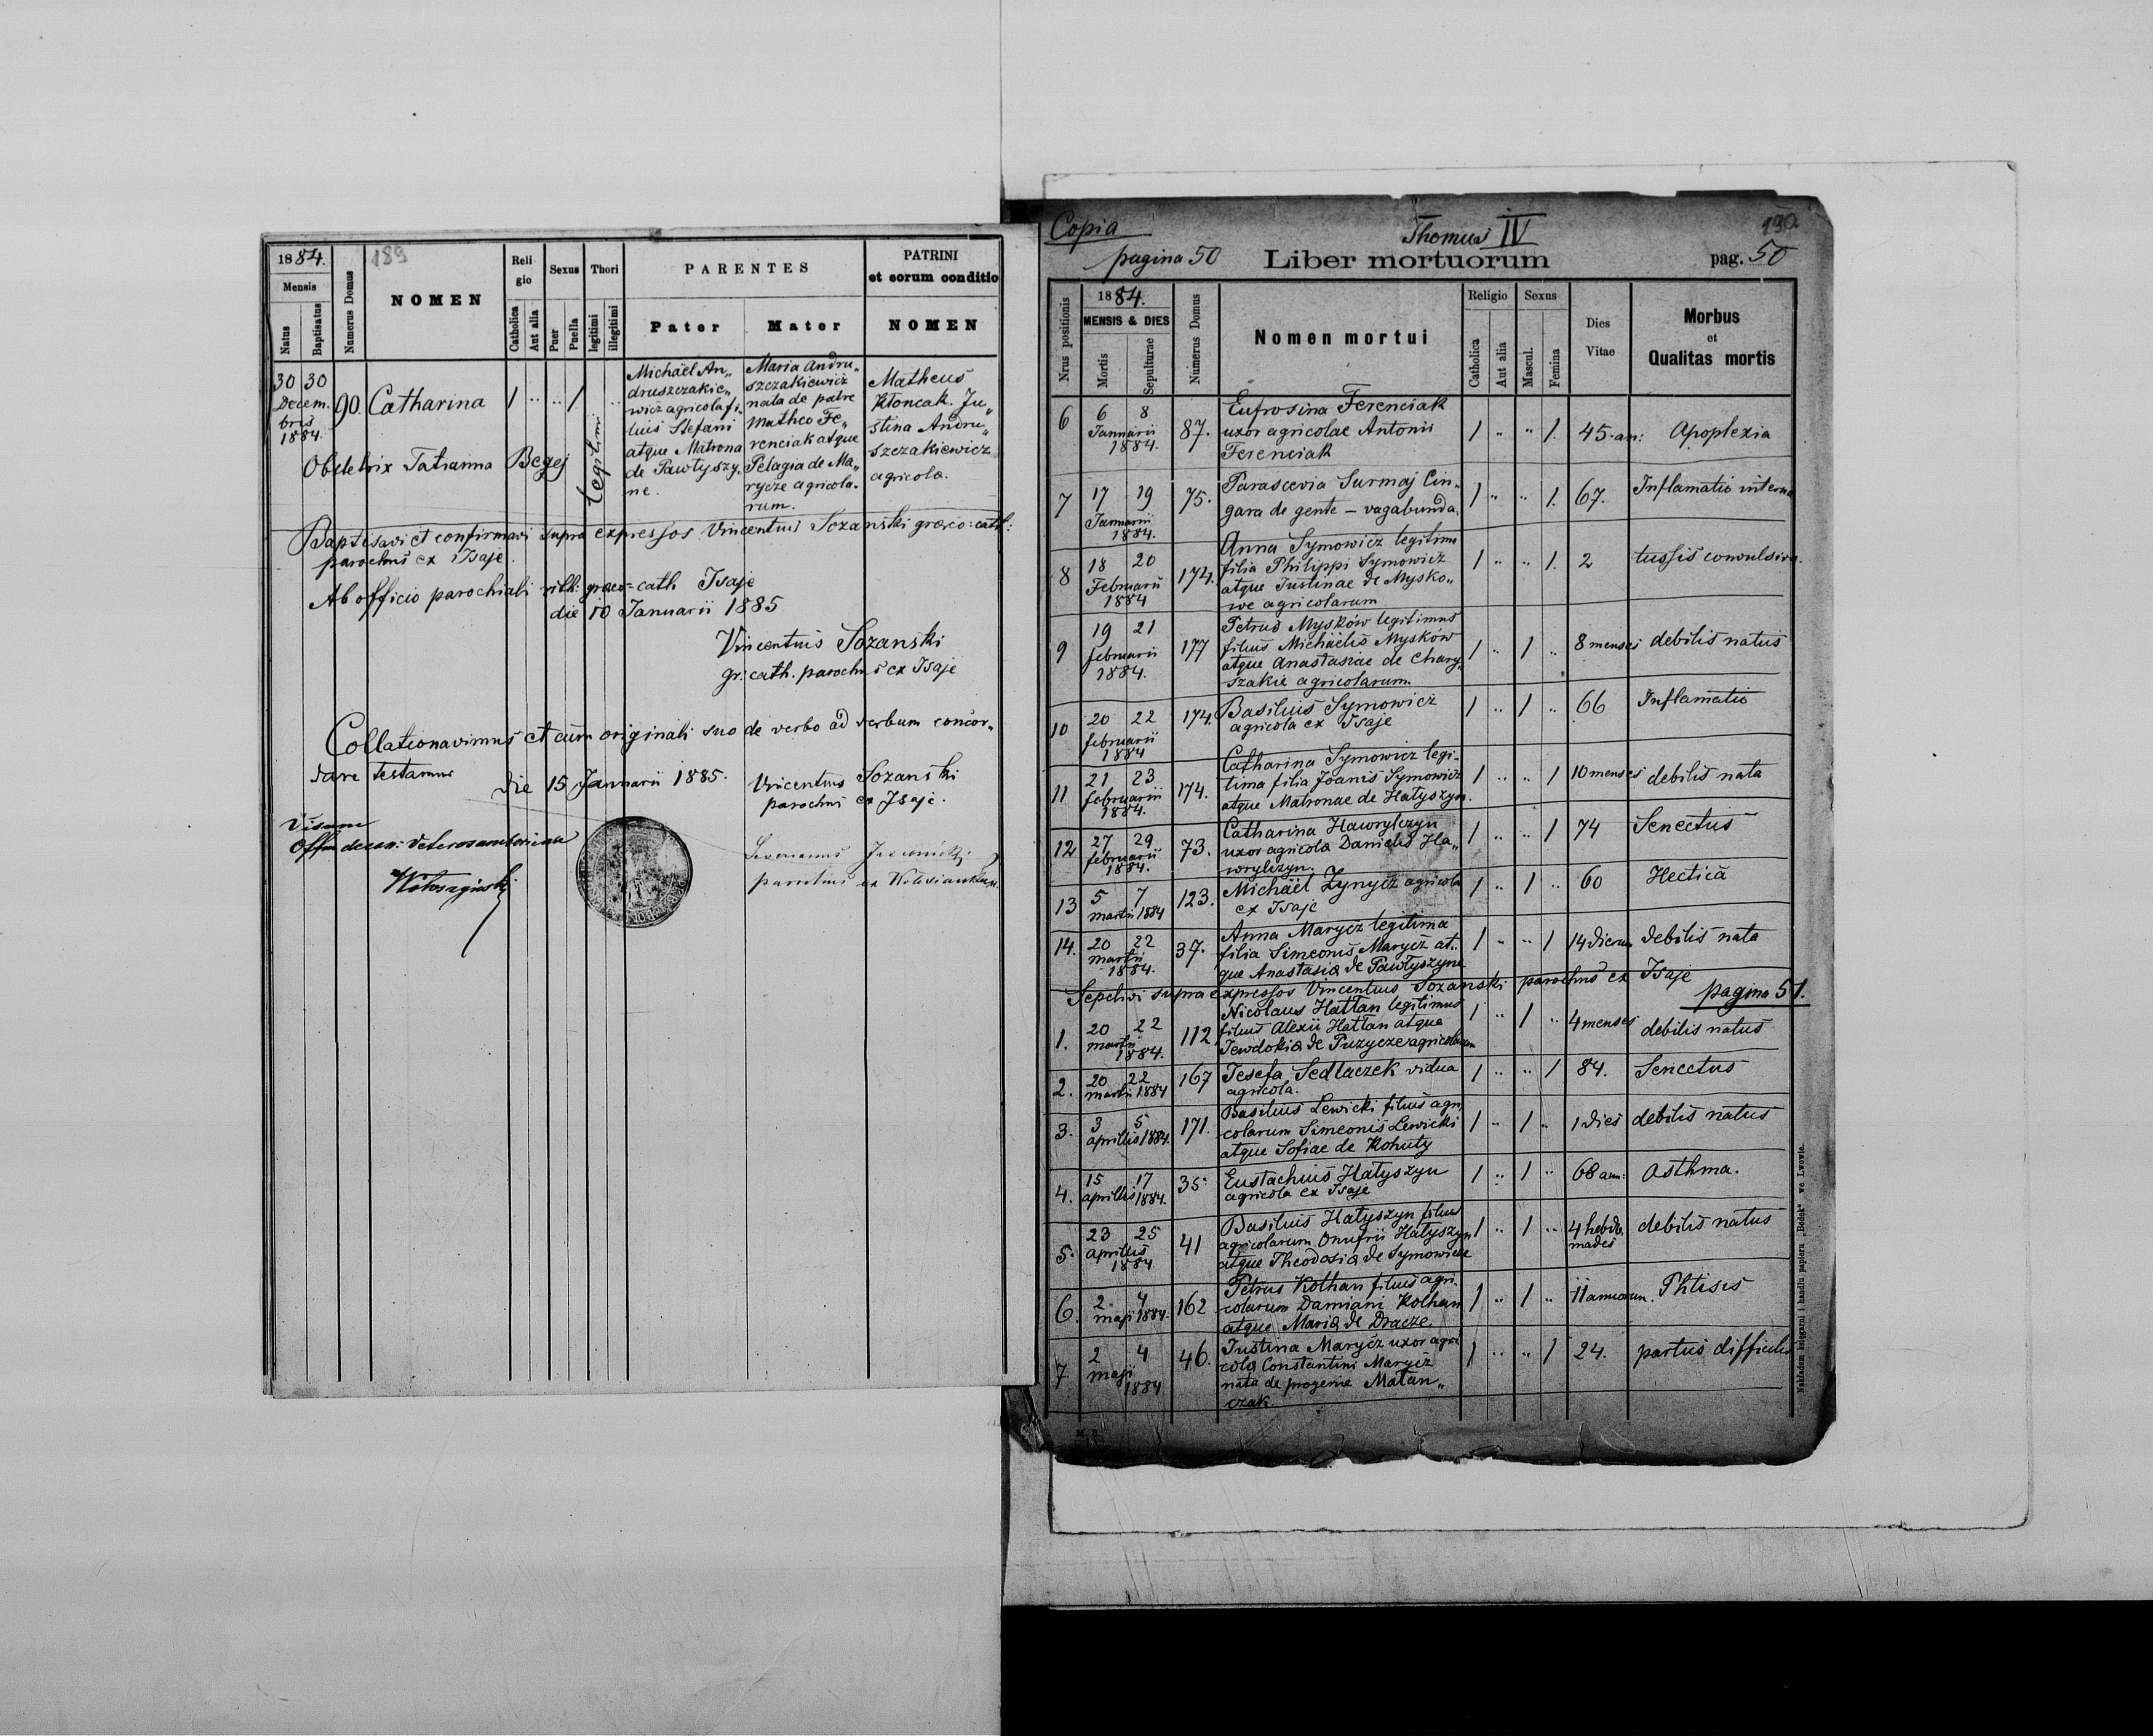 1884.
189
Mensis
Natus
Baptisatus
Numerus Domus
NOMEN
Religio
Catholica
Aut alia
Sexus
Puer
Puella
Thori
legitimi
illegitimi
PARENTES
Pater
Mater
PATRINI
et eorum conditio
NOMEN
30 30
Decem.
bris
1884.
90.
Catharina
1 .. .. 1 ..
legitimi
Michaël An„
druszczakie„
wicz agricola fi„
lius Stefani
atque Matrona
de Pawłyszy„
ne.
Maria Andru„
szczakiewicz
nata de patre
Matheo Fe„
renciak atque
Pelagia de Ma„
rycze agricola„
rum.
Matheus
Kłoncak. Ju„
stina Andru„
szczakiewicz
agricola.
Obstetrix Tatianna Begej
Baptisavi et confirmavi supra expressos Vincentius Sozanski graeco: cath:
parochus ex Isaje.
Ab officio parochiali rith: graeco=cath Isaje
die 10 Januarii 1885
Vincentius Sozanski
gr: cath. parochus ex Isaje
Collationavimus et cum originali suo de verbo ad verbum concor„
dare testamur
die 15 Januarii 1885.
Vincentius Sozanski
parochus ex Isaje.
Visum
parochus ex
Copia
pagina 50
Thomus IV
190
Liber mortuorum
pag. 50
Nrus positionis
1884.
MENSIS & DIES
Mortis
Sepulturae
Numerus Domus
Nomen mortui
Religio
Catholica
Aut alia
Sexus
Mascul.
Femina
Dies
Vitae
Morbus
et
Qualitas mortis
6 6 8 Januarii 1884. 87. Eufrosina Ferenciak 1 .. .. 1. 45. an: Apoplexia
uxor agricolae Antonii
Ferenciak
7 17 19 Januarii 1884. 75. Parascevia Surmaj Cin„ 1 .. .. 1. 67. Inflamatio interna
gara de gente – vagabunda.
8 18 20 Februarii 1884 174. Anna Symowicz legitima 1 .. .. 1. 2 tussis convulsiva.
filia Philippi Symowicz
atque Justinae de Mysko„
we agricolarum
9 19 21 februarii 1884. 177 Petrus Mysków legitimus 1 .. 1 .. 8 menses debilis natus
filius Michäelis Mysków
atque Anastasiae de Chary„
szakie agricolarum.
10 20 22 februarii 1884 174. Basilius Symowicz 1 .. 1 .. 66 Inflamatio
agricola ex Isaje
11 21 23 februarii 1884. 174. Catharina Symowicz legi„ 1 .. .. 1 10 menses debilis nata
tima filia Joanis Symowicz
atque Matronae de Hałyszyn.
12 27 29 februarii 1884. 73. Catharina Hawrylczyn 1 .. .. 1 74 Senectus
uxor agricola Danielis Ha„
wrylczyn.
13 5 7 martii 1884 123. Michäel Zynycz agricola 1 .. 1 .. 60 Hectica
ex Isaje
14. 20 22 martii 1884. 37. Anna Marycz legitima 1 .. .. 1 14 dierum debilis nata
filia Simeonis Marycz at„
que Anastasia de Pawłyszyne
Sepelivi supra expressos Vincentius Sozanski parochus ex Isaje
pagina 51.
1. 20 22 martii 1884. 112 Nicolaus Hatłan legitimus 1 .. 1 .. 4 menses debilis natus
filius Alexii Hatłan atque
Jewdokia de Puzycze agricolarum
2. 20 22 martii 1884 167 Josefa Sedlaczek vidua 1 .. .. 1 84. Senectus
agricola.
3. 3 5 aprilis 1884. 171. Basilius Lewicki filius agri„ 1 .. 1 .. 1 dies debilis natus
colarum Simeonis Lewicki
atque Sofiae de Kohuty
4. 15 17 aprilis 1884. 35. Eustachius Hałyszyn 1 .. 1 .. 68 ann: Asthma.
agricola ex Isaje
5. 23 25 aprilis 1884 41 Basilius Hałyszyn filius 1 .. 1 .. 4 hebdo„ debilis natus
agricolarum Onufrii Hałyszyn mades
atque Theodosia de Symowicze
6. 2 4 maji 1884. 162 Petrus Kolhan filius agri„ 1 .. 1 .. 11 annorum. Phtisis
colarum Damiani Kolhan
atque Maria de Dracze
7 2 4 maji 1884 46. Justina Marycz uxor agri 1 .. .. 1 24. partus difficilis
cola Constantini Marycz
nata de progenie Matan„
czak.
Nakładem księgarni i handlu papieru „Bodek" we Lwowie.